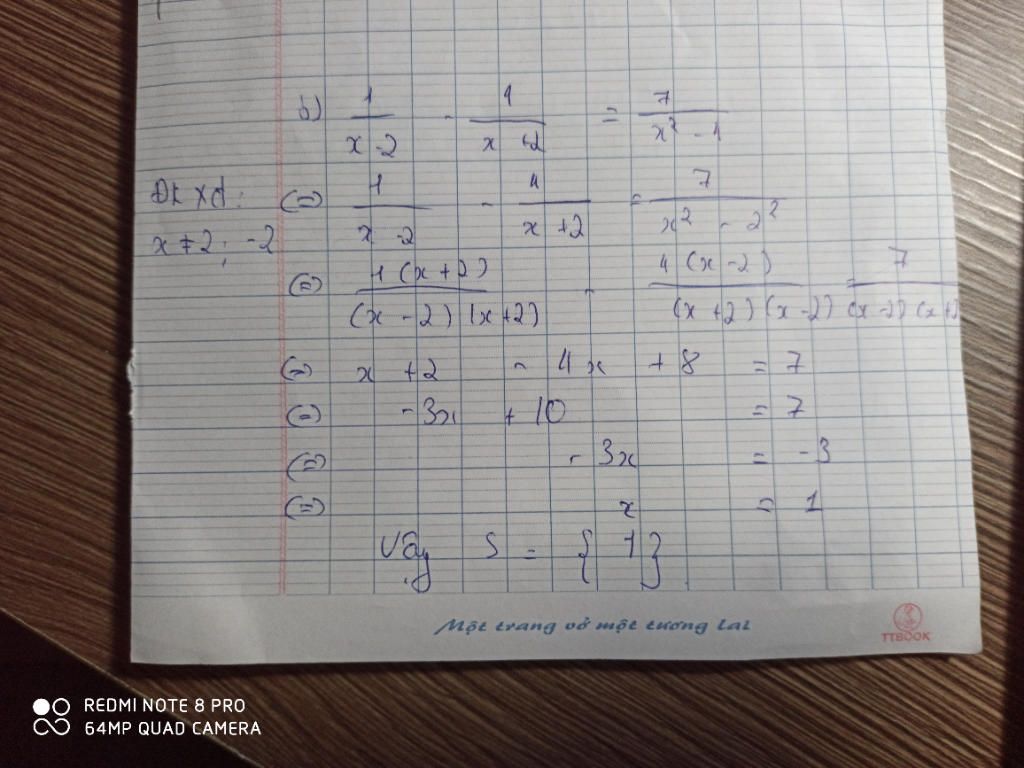 b) 1/(x-2) - 4/(x+2) = 7/(x² - 4)
ĐKXĐ: (=) 1/(x-2) - 4/(x+2) = 7/(x² - 2²)
x ≠ 2; -2
(=) 1(x+2)/((x-2)(x+2)) - 4(x-2)/((x+2)(x-2)) = 7/((x-2)(x+2))
(=) x + 2 - 4x + 8 = 7
(=) -3x + 10 = 7
(=) -3x = -3
(=) x = 1
Vậy S = {1}
Một trang vở một tương lai
TTBOOK
REDMI NOTE 8 PRO
64MP QUAD CAMERA